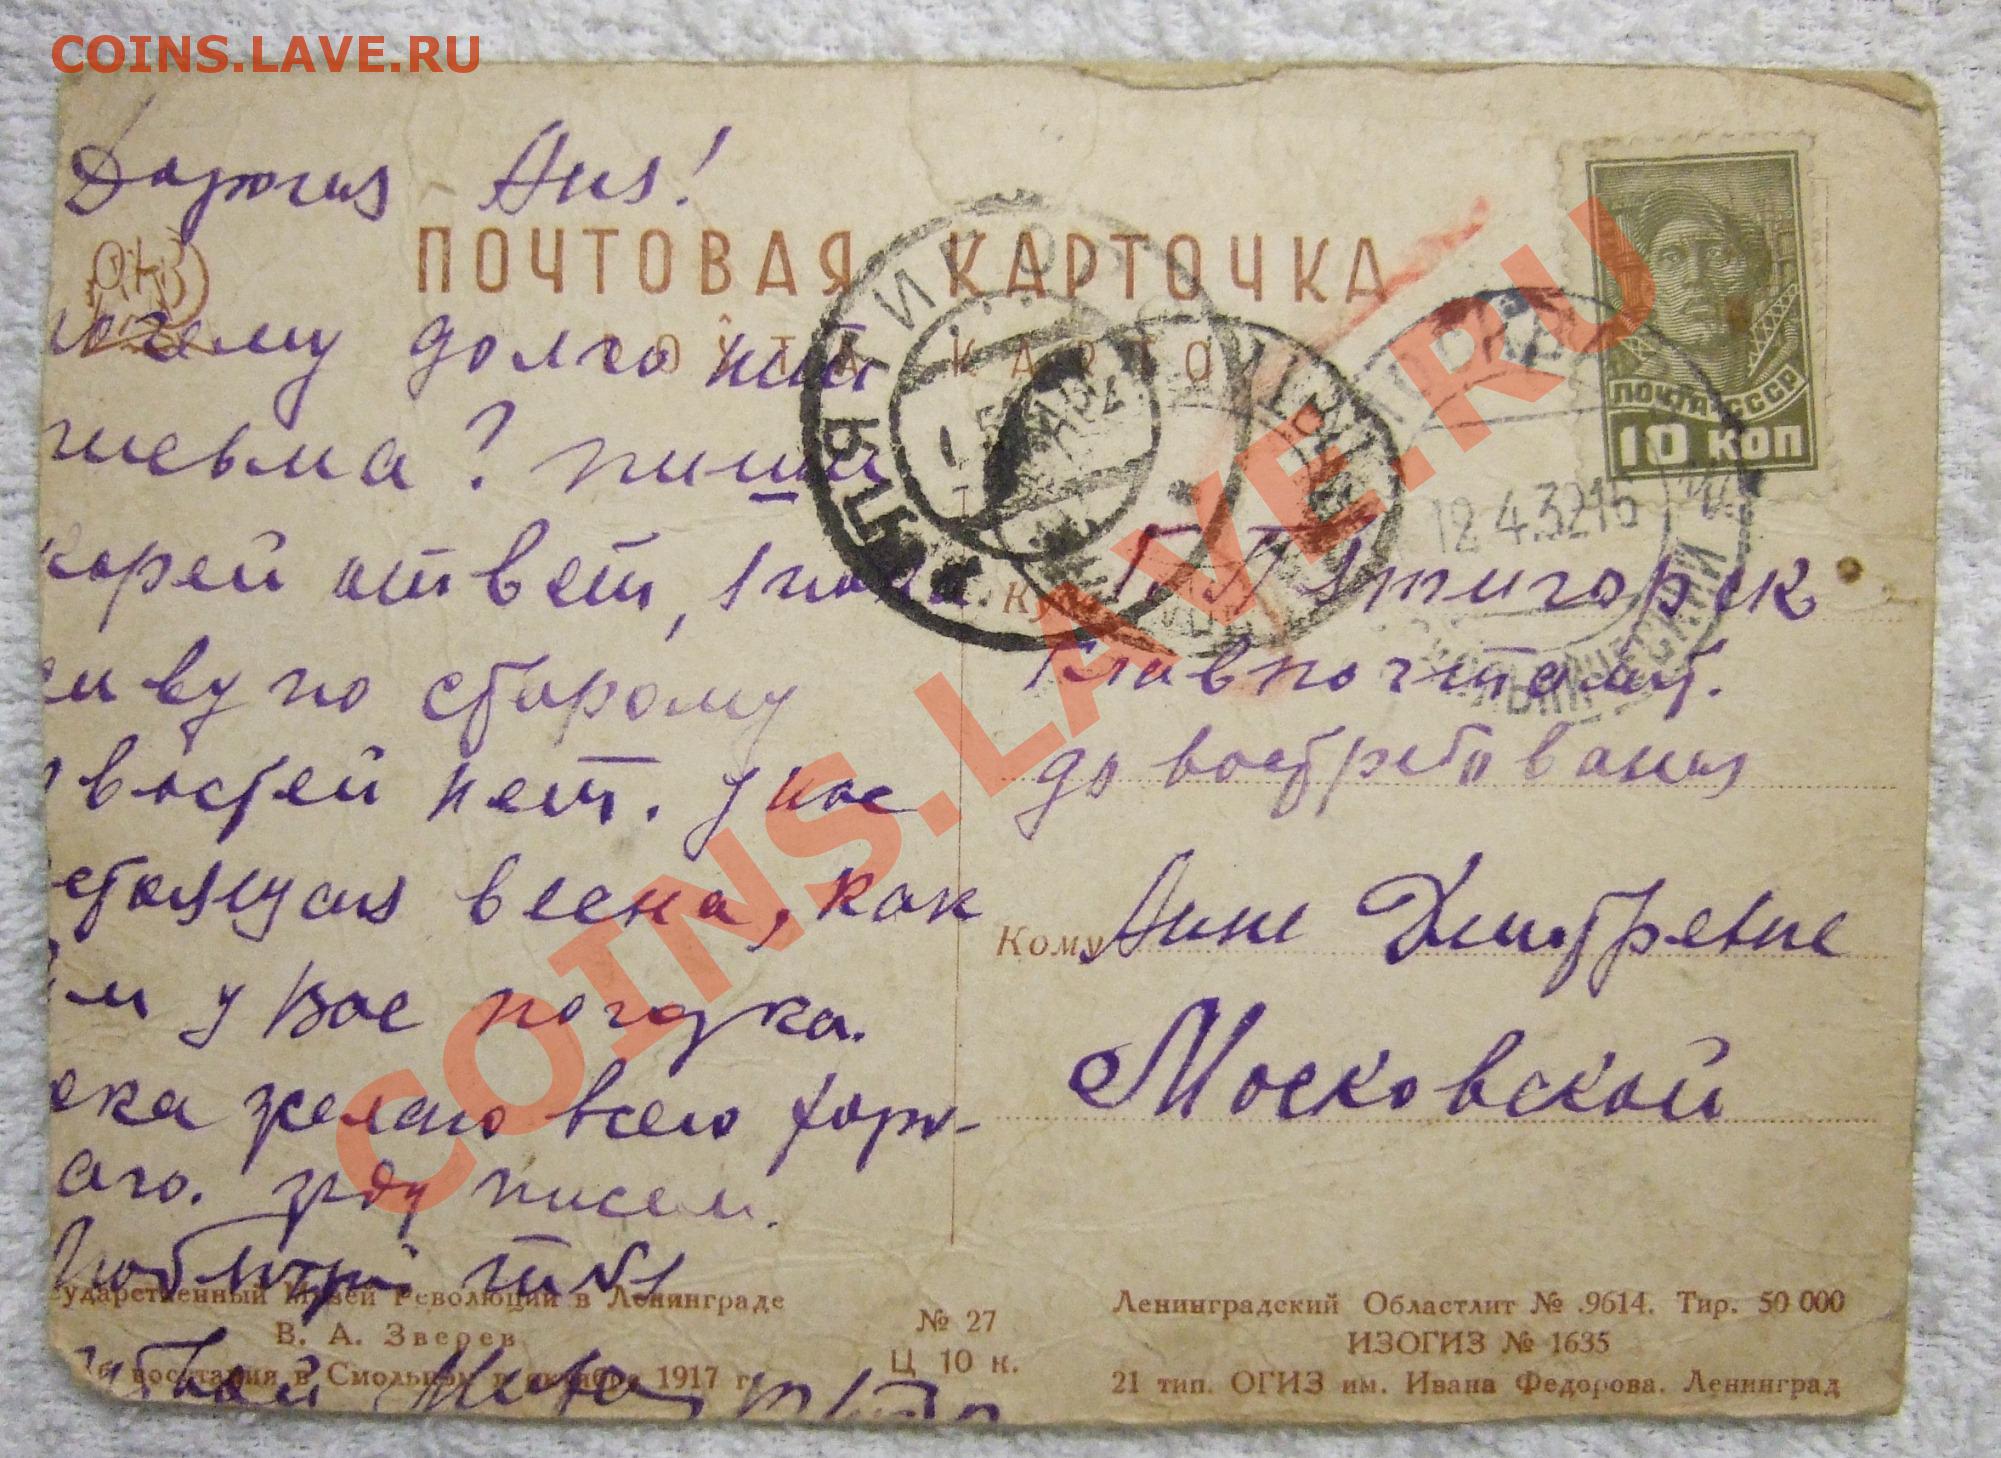 COINS.LAVE.RU
Дорогая Аня!
ПОЧТОВАЯ КАРТОЧКА
KARTO
очему долго нет
письма? пиши
корей ответ, я пока
живу по старому
востей нет. у нас
стоящая весна, как
у вас погодка.
ока желаю всего хоро-
аго. жду писем.
Любящий тебя
твой Митя
ПОЧТА СССР
10 КОП
12.4.32 16
Куда Г. Пятигорск
Главпочтамт.
до востребования
Кому Анне Дмитревне
Московской
ударственный Музей Революции в Ленинграде
В. А. Зверев
восстания в Смольном в октябре 1917 г.
№ 27
Ц 10 к.
Ленинградский Областлит № 9614. Тир. 50 000
ИЗОГИЗ № 1635
21 тип. ОГИЗ им. Ивана Федорова. Ленинград
COINS.LAVE.RU